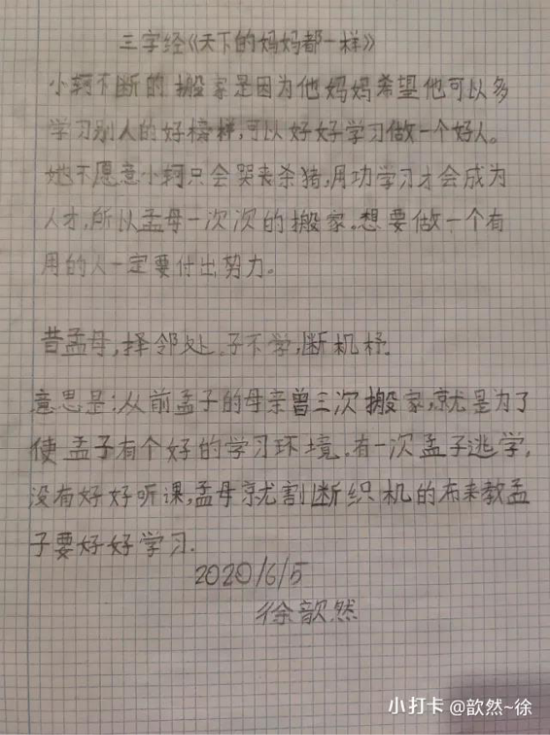 三字经《天下的妈妈都一样》
小轲不断的搬家是因为他妈妈希望他可以多
学习别人的好榜样,可以好好学习做一个好人。
她不愿意小轲只会哭丧杀猪,用功学习才会成为
人才,所以孟母一次次的搬家,想要做一个有
用的人一定要付出努力。
昔孟母,择邻处。子不学,断机杼.
意思是:从前孟子的母亲曾三次搬家,就是为了
使孟子有个好的学习环境.有一次孟子逃学,
没有好好听课,孟母就割断织机的布来教孟
子要好好学习.
2020/6/5
徐歆然
小打卡 @歆然~徐